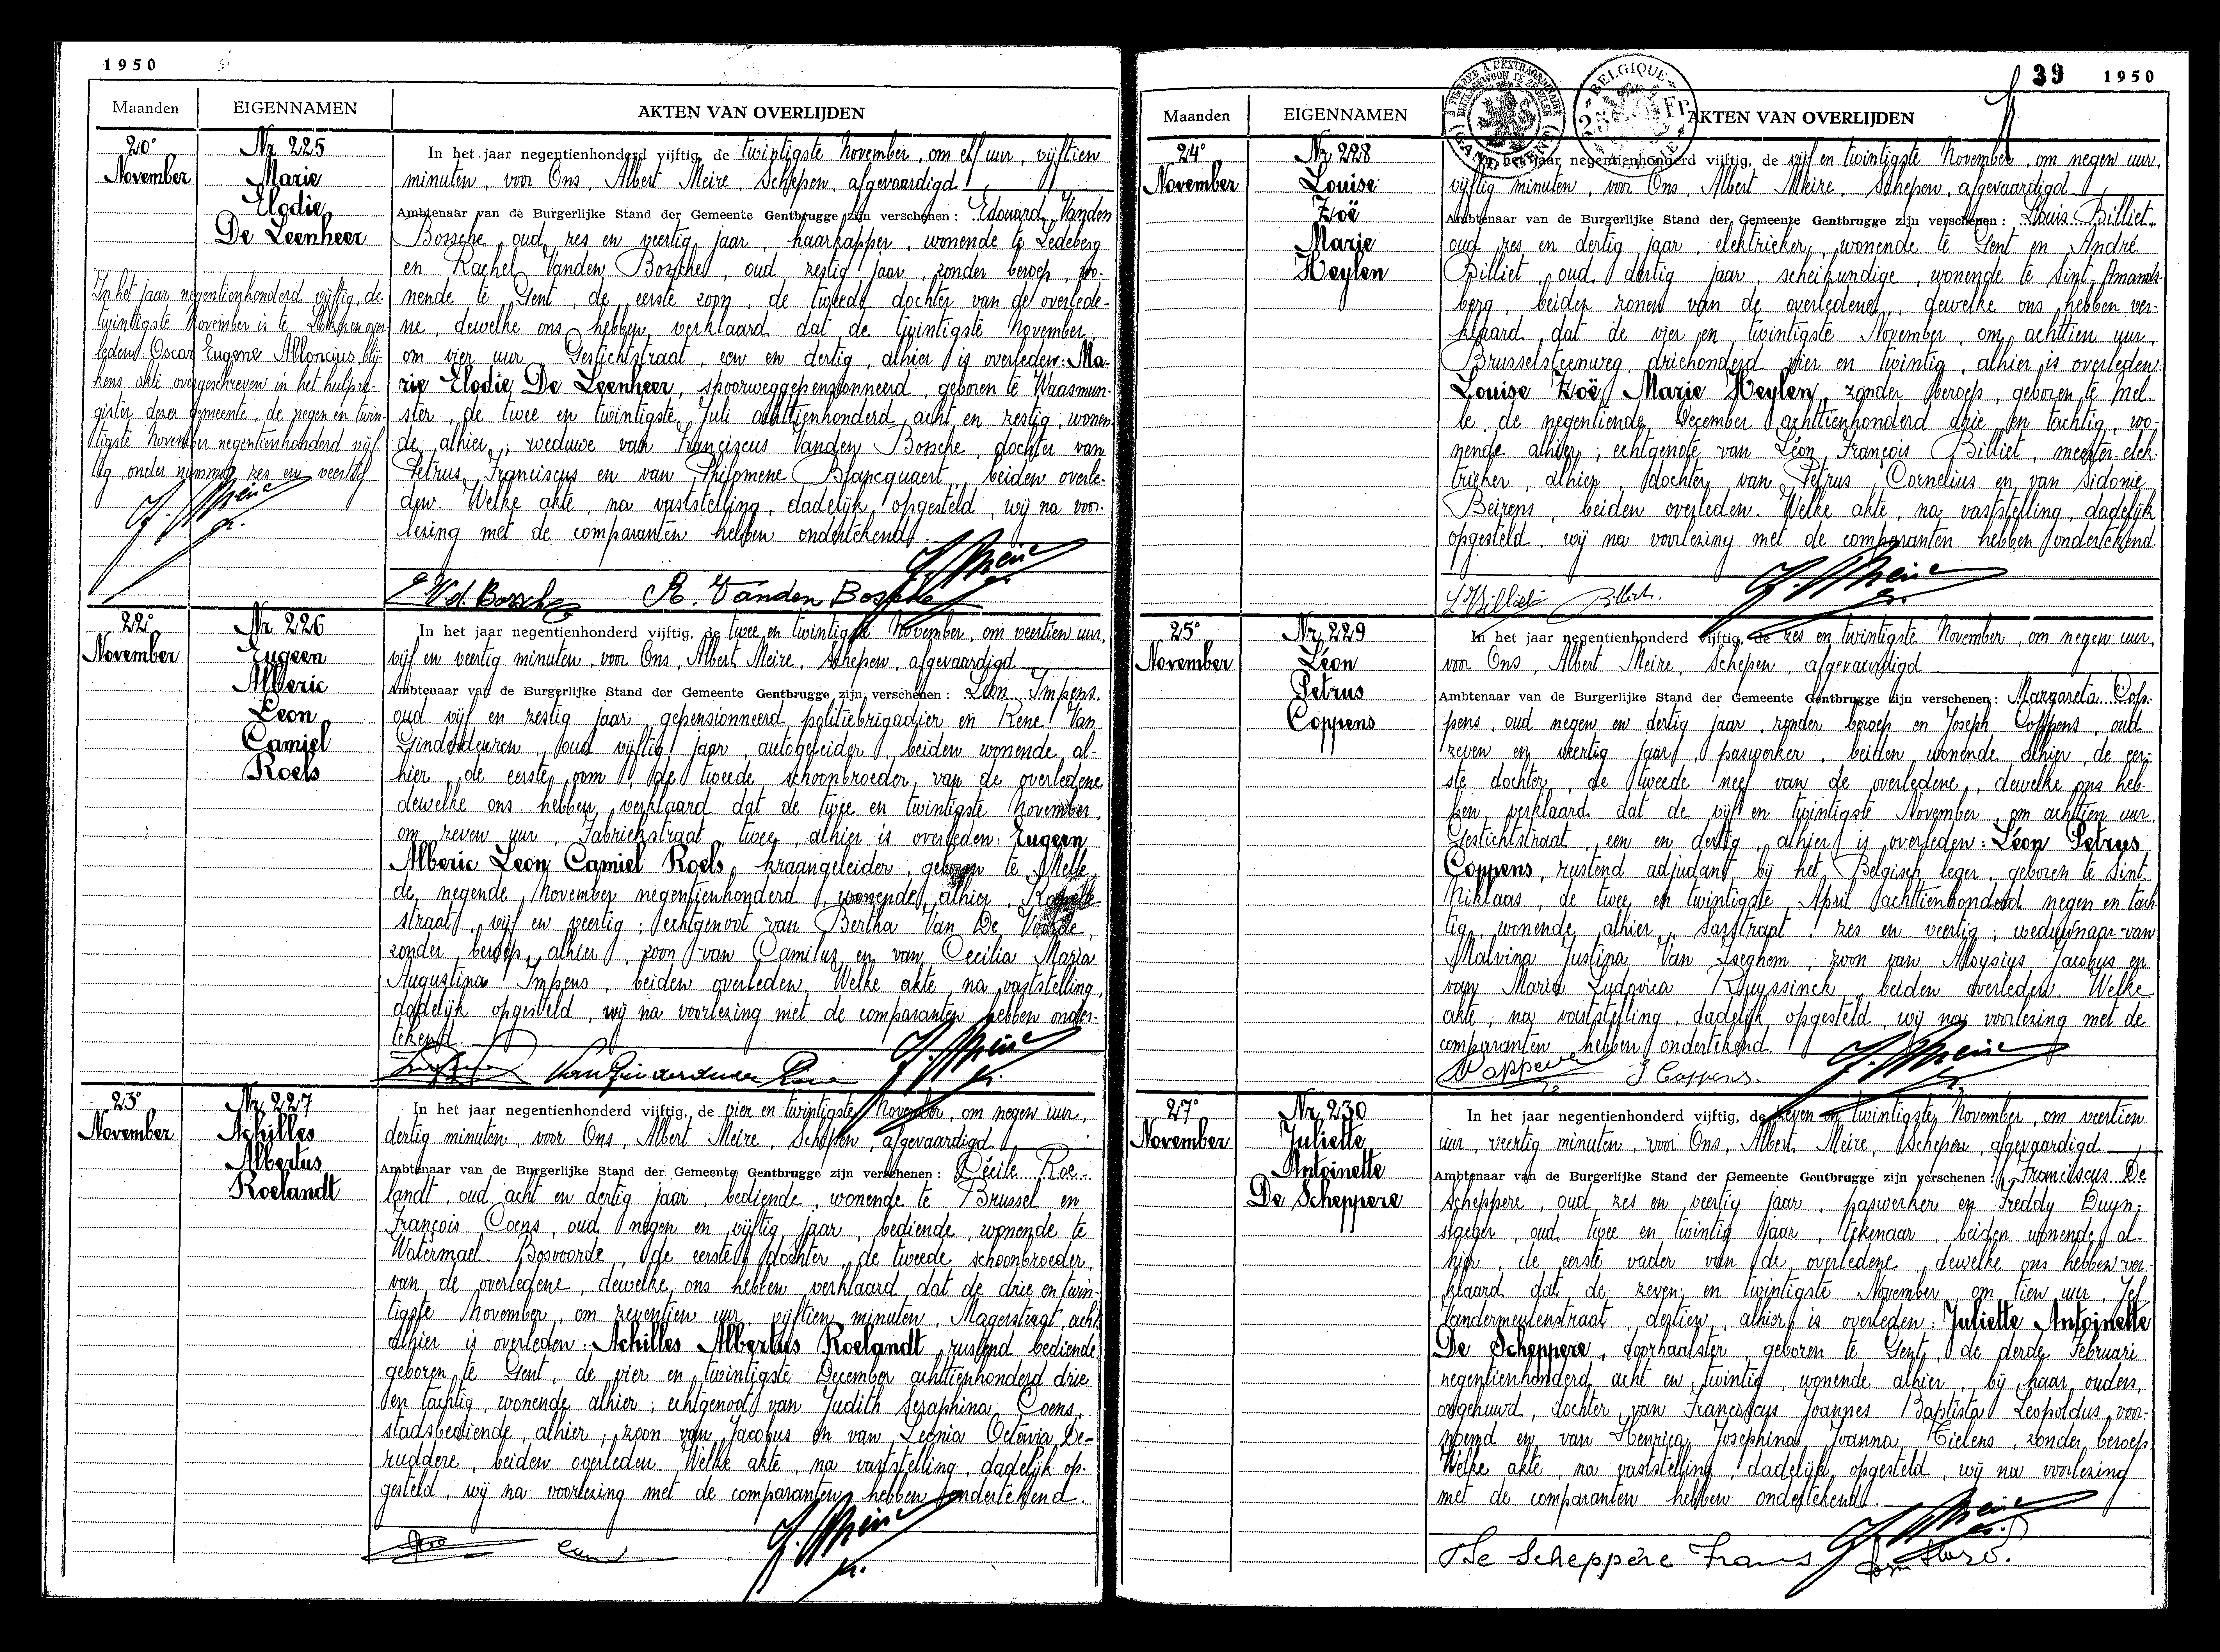 1950
Maanden
EIGENNAMEN
AKTEN VAN OVERLIJDEN
20e
November
Nr 225
Marie
Elodie
De Leenheer
In het jaar negentienhonderd vijftig, de twintigste November, om elf uur, vijftien
minuten, voor Ons, Albert Meire, Schepen, afgevaardigd
Ambtenaar van de Burgerlijke Stand der Gemeente Gentbrugge zijn verschenen: Edouard Vanden
Bossche, oud zes en veertig jaar, haarkapper, wonende te Ledeberg
en Rachel Vanden Bossche, oud zestig jaar, zonder beroep, wo-
nende te Gent, de eerste zoon, de tweede dochter van de overlede-
ne, dewelke ons hebben verklaard dat de twintigste November,
om vier uur, Gestichtstraat, een en dertig, alhier is overleden: Ma-
rie Elodie De Leenheer, spoorweggepensionneerd, geboren te Waasmun-
ster, de twee en twintigste Juli achttienhonderd acht en zestig, wonen-
de alhier; weduwe van Franciscus Vanden Bossche, dochter van
Petrus Franciscus en van Philomene Blancquaert, beiden overle-
den. Welke akte, na vaststelling, dadelijk opgesteld, wij na voor-
lezing met de comparanten hebben ondertekend.
E Vd. Bossche R. Vanden Bossche
In het jaar negentienhonderd vijftig, de
twintigste November is te Lokeren over-
leden: Oscar Eugene
kens akte overgeschreven in het hulpre-
gister dezer gemeente, de negen en twin-
tigste November negentienhonderd vijf-
tig, onder nummer zes en veertig
22e
November
Nr 226
Eugeen
Alberic
Leon
Camiel
Roels
In het jaar negentienhonderd vijftig, de twee en twintigste November, om veertien uur,
vijf en veertig minuten, voor Ons, Albert Meire, Schepen, afgevaardigd
Ambtenaar van de Burgerlijke Stand der Gemeente Gentbrugge zijn verschenen: Léon Impens,
oud vijf en zestig jaar, gepensionneerd politiebrigadier en René Van
Ginderdeuren, oud vijftig jaar, autogeleider, beiden wonende al-
hier, de eerste oom, de tweede schoonbroeder van de overledene
dewelke ons hebben verklaard dat de twee en twintigste November,
om zeven uur, Fabriekstraat, twee, alhier is overleden: Eugeen
Alberic Leon Camiel Roels, kraangeleider, geboren te Melle,
de negende November negentienhonderd, wonende alhier,
straat, vijf en veertig; echtgenoot van Bertha Van De Voorde,
zonder beroep, alhier, zoon van Camilus en van Cecilia Maria
Augustina Impens, beiden overleden. Welke akte, na vaststelling,
dadelijk opgesteld, wij na voorlezing met de comparanten hebben onder-
tekend.
23e
November
Nr 227
Achilles
Albertus
Roelandt
In het jaar negentienhonderd vijftig, de vier en twintigste November, om negen uur,
dertig minuten, voor Ons, Albert Meire, Schepen, afgevaardigd
Ambtenaar van de Burgerlijke Stand der Gemeente Gentbrugge zijn verschenen: Cécile Roe-
landt, oud acht en dertig jaar, bediende, wonende te Brussel en
François Coens, oud negen en vijftig jaar, bediende, wonende te
Watermael-Bosvoorde, de eerste dochter, de tweede schoonbroeder
van de overledene, dewelke ons hebben verklaard dat de drie en twin-
tigste November, om zeventien uur, vijftien minuten, Magerstraat, acht
alhier is overleden: Achilles Albertus Roelandt, rustend bediende,
geboren te Gent, de vier en twintigste December achttienhonderd drie
en tachtig, wonende alhier; echtgenoot van Judith Seraphina Coens,
stadsbediende, alhier; zoon van Jacobus en van Leonia Octavia De-
ruddere, beiden overleden. Welke akte, na vaststelling, dadelijk op-
gesteld, wij na voorlezing met de comparanten hebben ondertekend.
39 1950
Maanden
EIGENNAMEN
AKTEN VAN OVERLIJDEN
BELGIQUE
24e
November
Nr 228
Louise
Zoë
Marie
Heylen
In het jaar negentienhonderd vijftig, de vijf en twintigste November, om negen uur,
vijftig minuten, voor Ons, Albert Meire, Schepen, afgevaardigd
Ambtenaar van de Burgerlijke Stand der Gemeente Gentbrugge zijn verschenen: Louis Billiet,
oud zes en dertig jaar, elektrieker, wonende te Gent en André
Billiet, oud dertig jaar, scheikundige, wonende te Sint-Amands-
berg, beiden zonen van de overledene, dewelke ons hebben ver-
klaard dat de vier en twintigste November, om achttien uur,
Brusselsteenweg, driehonderd vier en twintig, alhier is overleden:
Louise Zoë Marie Heylen, zonder beroep, geboren te Mel-
le, de negentiende December achttienhonderd drie en tachtig, wo-
nende alhier; echtgenote van Léon François Billiet, meester-elek-
trieker, alhier, dochter van Petrus Cornelius en van Sidonie
Beirens, beiden overleden. Welke akte, na vaststelling, dadelijk
opgesteld, wij na voorlezing met de comparanten hebben ondertekend.
L Billiet Billiet.
25e
November
Nr 229
Léon
Petrus
Coppens
In het jaar negentienhonderd vijftig, de zes en twintigste November, om negen uur,
voor Ons, Albert Meire, Schepen, afgevaardigd
Ambtenaar van de Burgerlijke Stand der Gemeente Gentbrugge zijn verschenen: Margareta Cop-
pens, oud negen en dertig jaar, zonder beroep en Joseph Coppens, oud
zeven en veertig jaar, paswerker, beiden wonende alhier, de eer-
ste dochter, de tweede neef van de overledene, dewelke ons heb-
ben verklaard dat de vijf en twintigste November, om achttien uur,
Gestichtstraat, een en dertig, alhier is overleden: Léon Petrus
Coppens, rustend adjudant bij het Belgisch leger, geboren te Sint-
Niklaas, de twee en twintigste April achttienhonderd negen en tach-
tig, wonende alhier, Sasstraat, zes en veertig; weduwnaar van
Malvina Justina Van Iseghem, zoon van Aloysius Jacobus en
van Maria Ludovica Kruyssinck, beiden overleden. Welke
akte, na vaststelling, dadelijk opgesteld, wij na voorlezing met de
comparanten hebben ondertekend.
J Coppens.
27e
November
Nr 230
Juliette
Antoinette
De Scheppere
In het jaar negentienhonderd vijftig, de zeven en twintigste November, om veertien
uur, veertig minuten, voor Ons, Albert Meire, Schepen, afgevaardigd
Ambtenaar van de Burgerlijke Stand der Gemeente Gentbrugge zijn verschenen: Franciscus De
Scheppere, oud zes en veertig jaar, paswerker en Freddy Duyn-
slaeger, oud twee en twintig jaar, tekenaar, beiden wonende al-
hier, de eerste vader van de overledene, dewelke ons hebben ver-
klaard dat de zeven en twintigste November, om tien uur, Jef
Vandermeulenstraat, dertien, alhier is overleden: Juliette Antoinette
De Scheppere, doorhaalster, geboren te Gent, de derde Februari
negentienhonderd acht en twintig, wonende alhier, bij haar ouders,
ongehuwd, dochter van Franciscus Joannes Baptista Leopoldus, voor-
noemd en van Henrica Josephina Joanna Tielens, zonder beroep.
Welke akte, na vaststelling, dadelijk opgesteld, wij na voorlezing
met de comparanten hebben ondertekend.
De Scheppere Frans